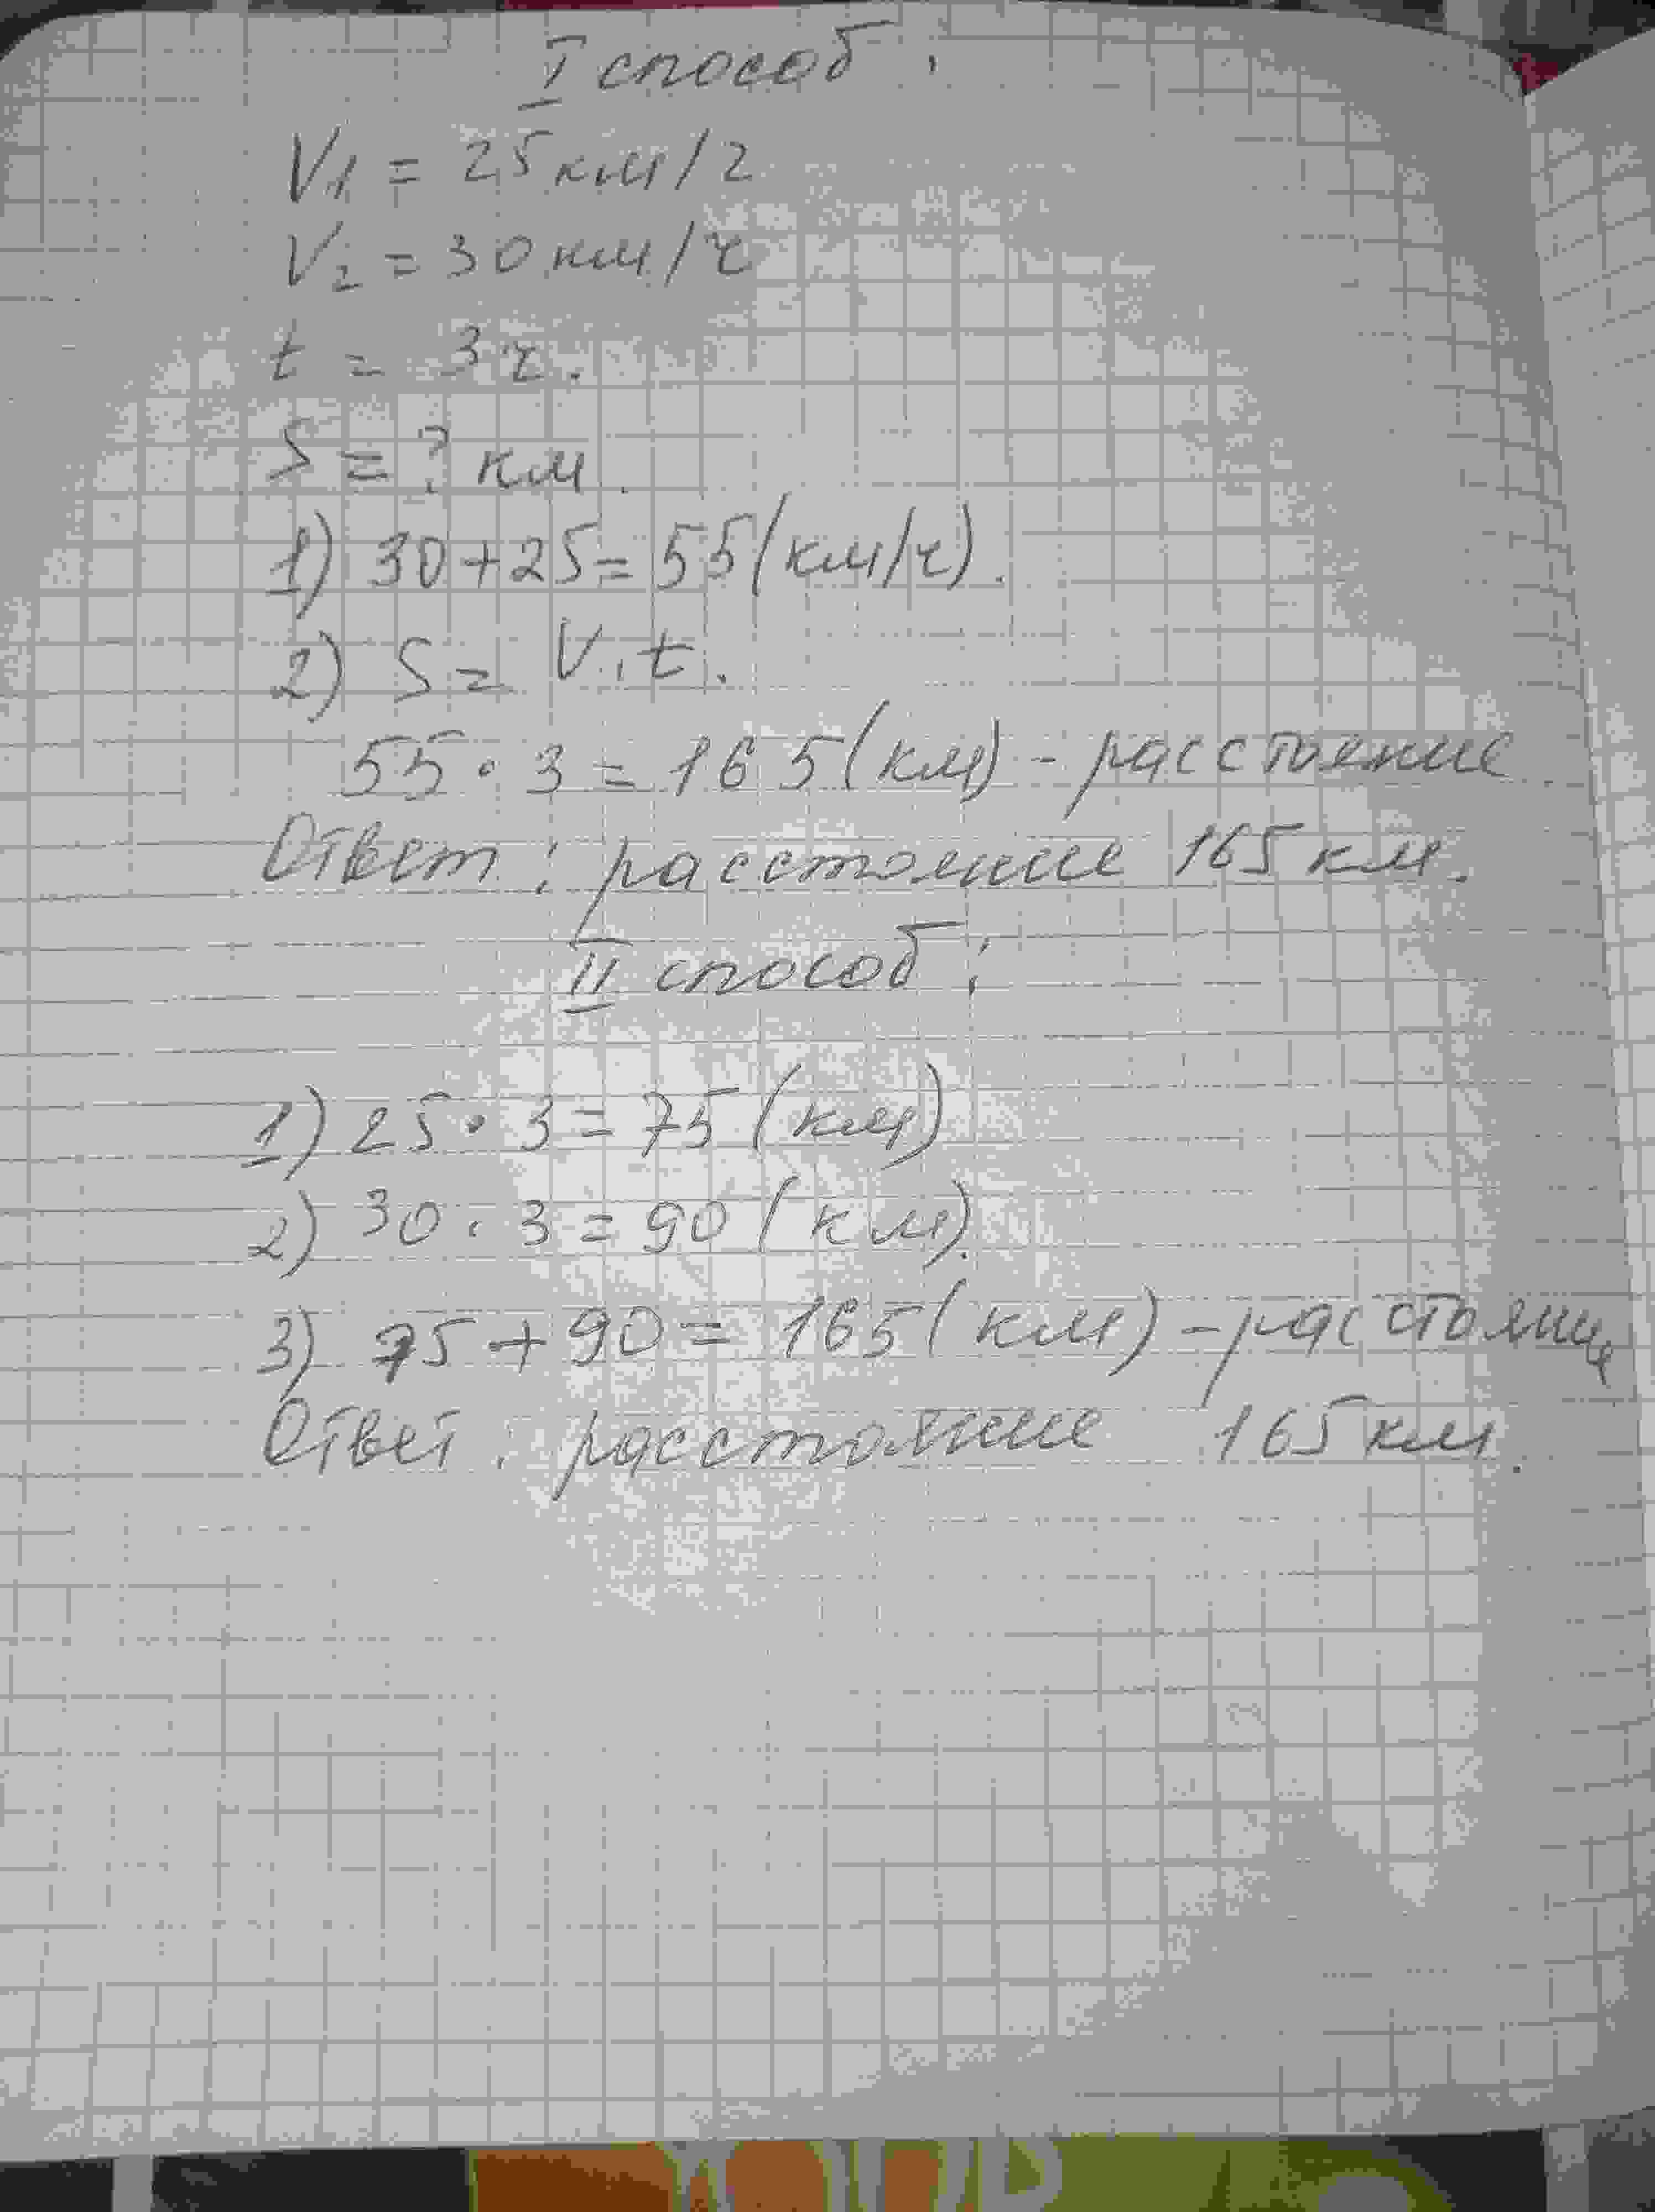 I способ:
V1 = 25 км/ч
V2 = 30 км/ч
t = 3ч.
S = ? км.
1) 30+25=55(км/ч).
2) S = V·t.
55·3=165(км)-расстояние
Ответ: расстояние 165 км.
II способ:
1) 25·3=75(км)
2) 30·3=90(км).
3) 75+90=165(км)-расстояние
Ответ: расстояние 165 км.